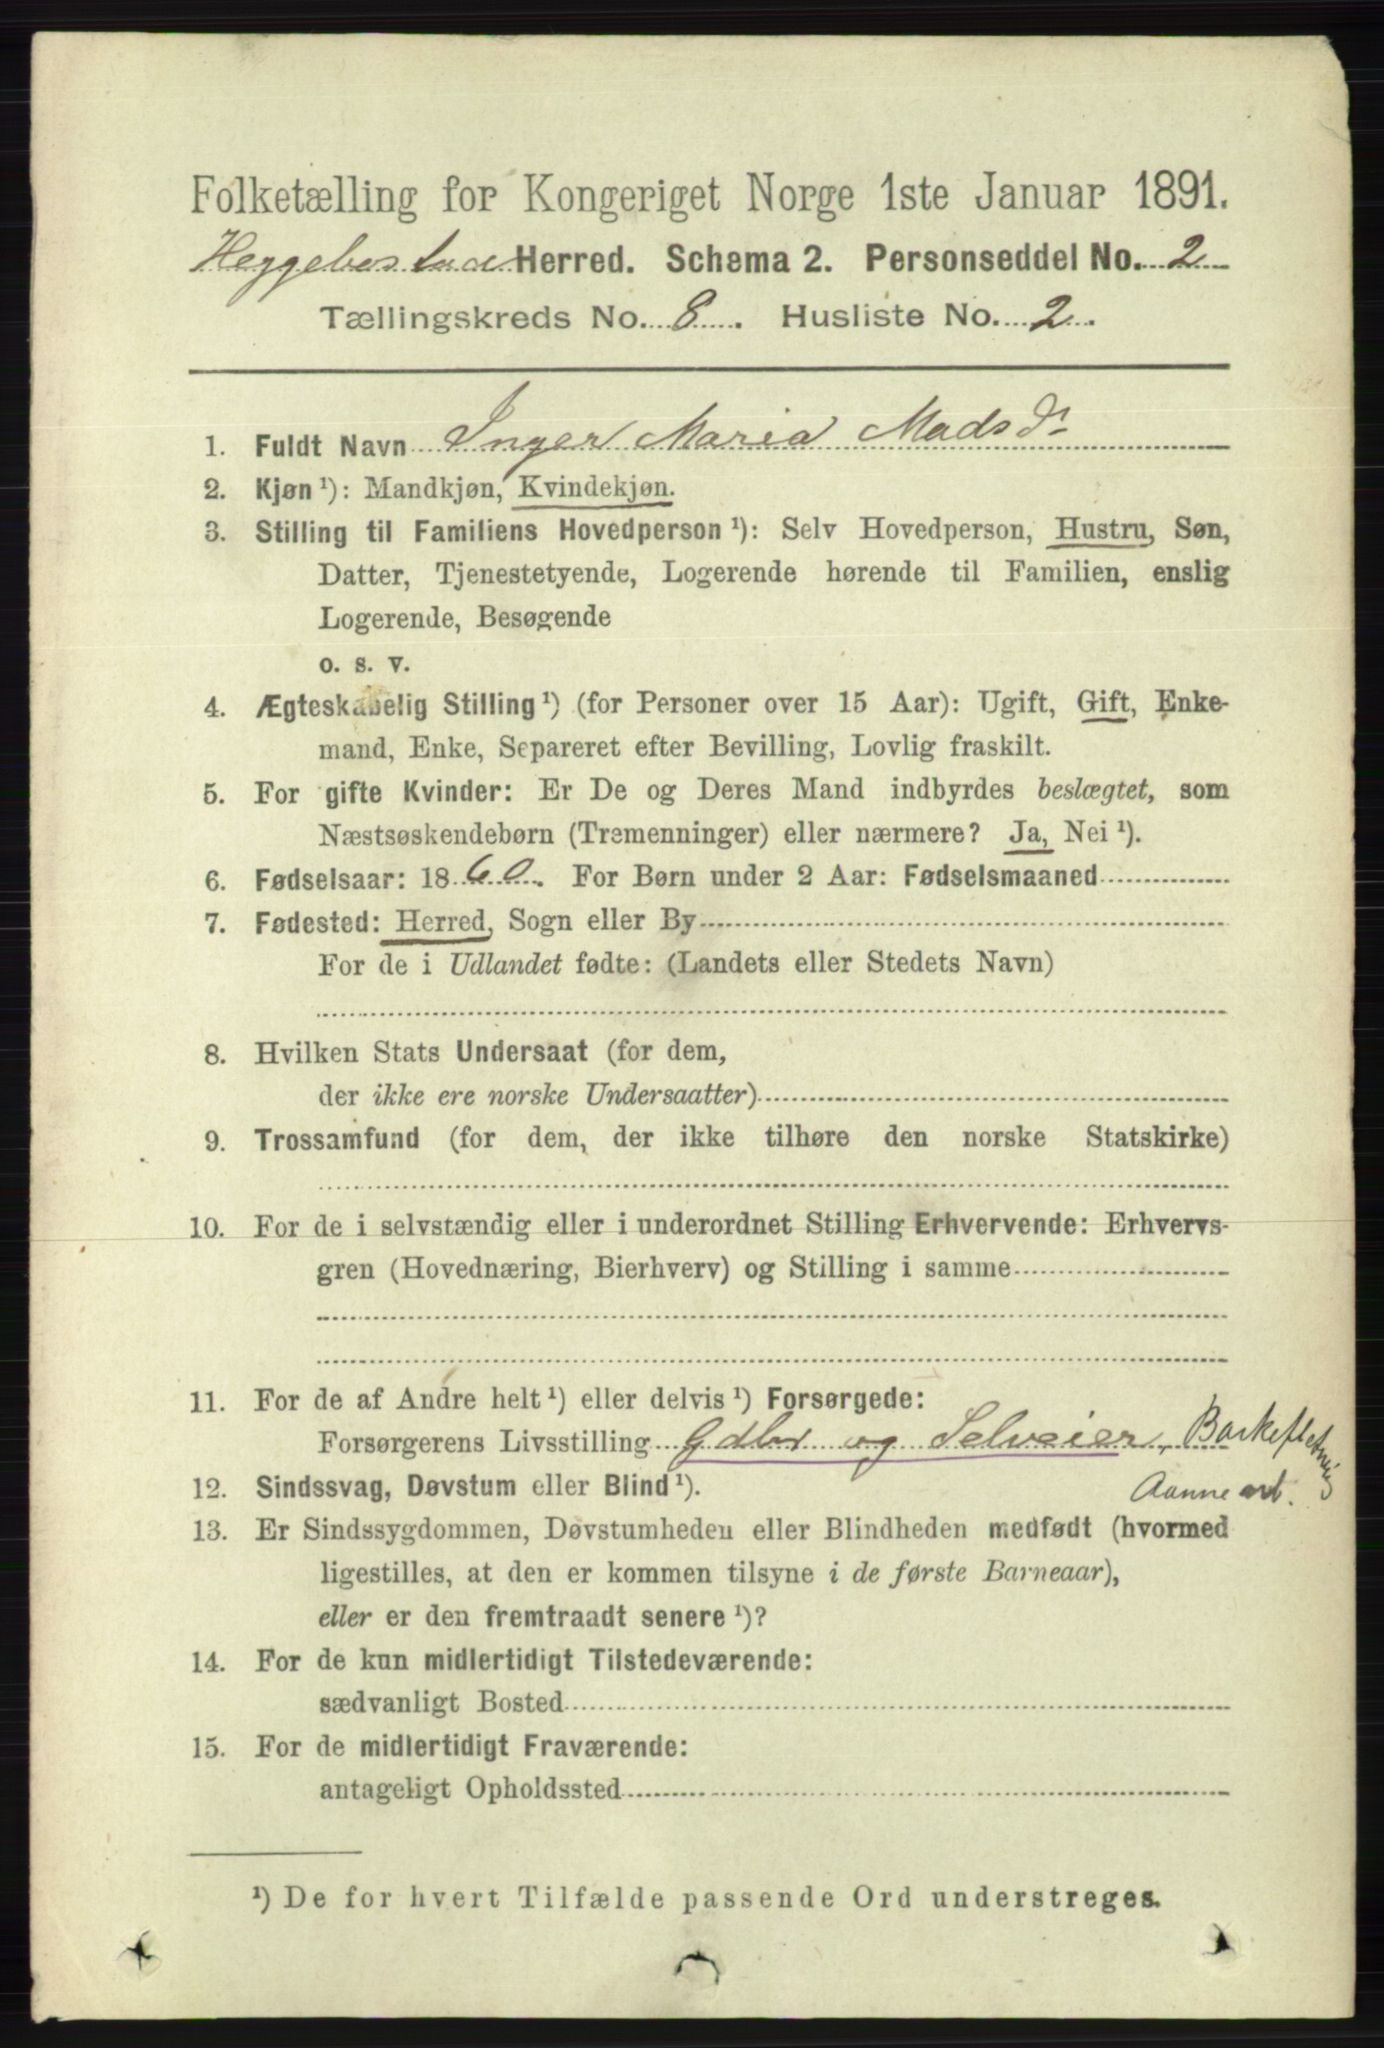 Folketælling for Kongeriget Norge 1ste Januar 1891.
Heggebostad Herred. Schema 2. Personseddel No. 2
Tællingskreds No. 8. Husliste No. 2.
1. Fuldt Navn Inger Maria Madsdr
2. Kjøn ¹): Mandkjøn, Kvindekjøn.
3. Stilling til Familiens Hovedperson ¹): Selv Hovedperson, Hustru, Søn,
Datter, Tjenestetyende, Logerende hørende til Familien, enslig
Logerende, Besøgende
o. s. v.
4. Ægteskabelig Stilling ¹) (for Personer over 15 Aar): Ugift, Gift, Enke-
mand, Enke, Separeret efter Bevilling, Lovlig fraskilt.
5. For gifte Kvinder: Er De og Deres Mand indbyrdes beslægtet, som
Næstsøskendebørn (Tremenninger) eller nærmere? Ja, Nei ¹).
6. Fødselsaar: 1860. For Børn under 2 Aar: Fødselsmaaned
7. Fødested: Herred, Sogn eller By
For de i Udlandet fødte: (Landets eller Stedets Navn)
8. Hvilken Stats Undersaat (for dem,
der ikke ere norske Undersaatter)
9. Trossamfund (for dem, der ikke tilhøre den norske Statskirke)
10. For de i selvstændig eller i underordnet Stilling Erhvervende: Erhvervs-
gren (Hovednæring, Bierhverv) og Stilling i samme
11. For de af Andre helt ¹) eller delvis ¹) Forsørgede:
Forsørgerens Livsstilling Gdbr og Selveier, Barkefletning
12. Sindssvag, Døvstum eller Blind ¹).
13. Er Sindssygdommen, Døvstumheden eller Blindheden medfødt (hvormed
ligestilles, at den er kommen tilsyne i de første Barneaar),
eller er den fremtraadt senere ¹)?
14. For de kun midlertidigt Tilstedeværende:
sædvanligt Bosted
15. For de midlertidigt Fraværende:
antageligt Opholdssted
¹) De for hvert Tilfælde passende Ord understreges.